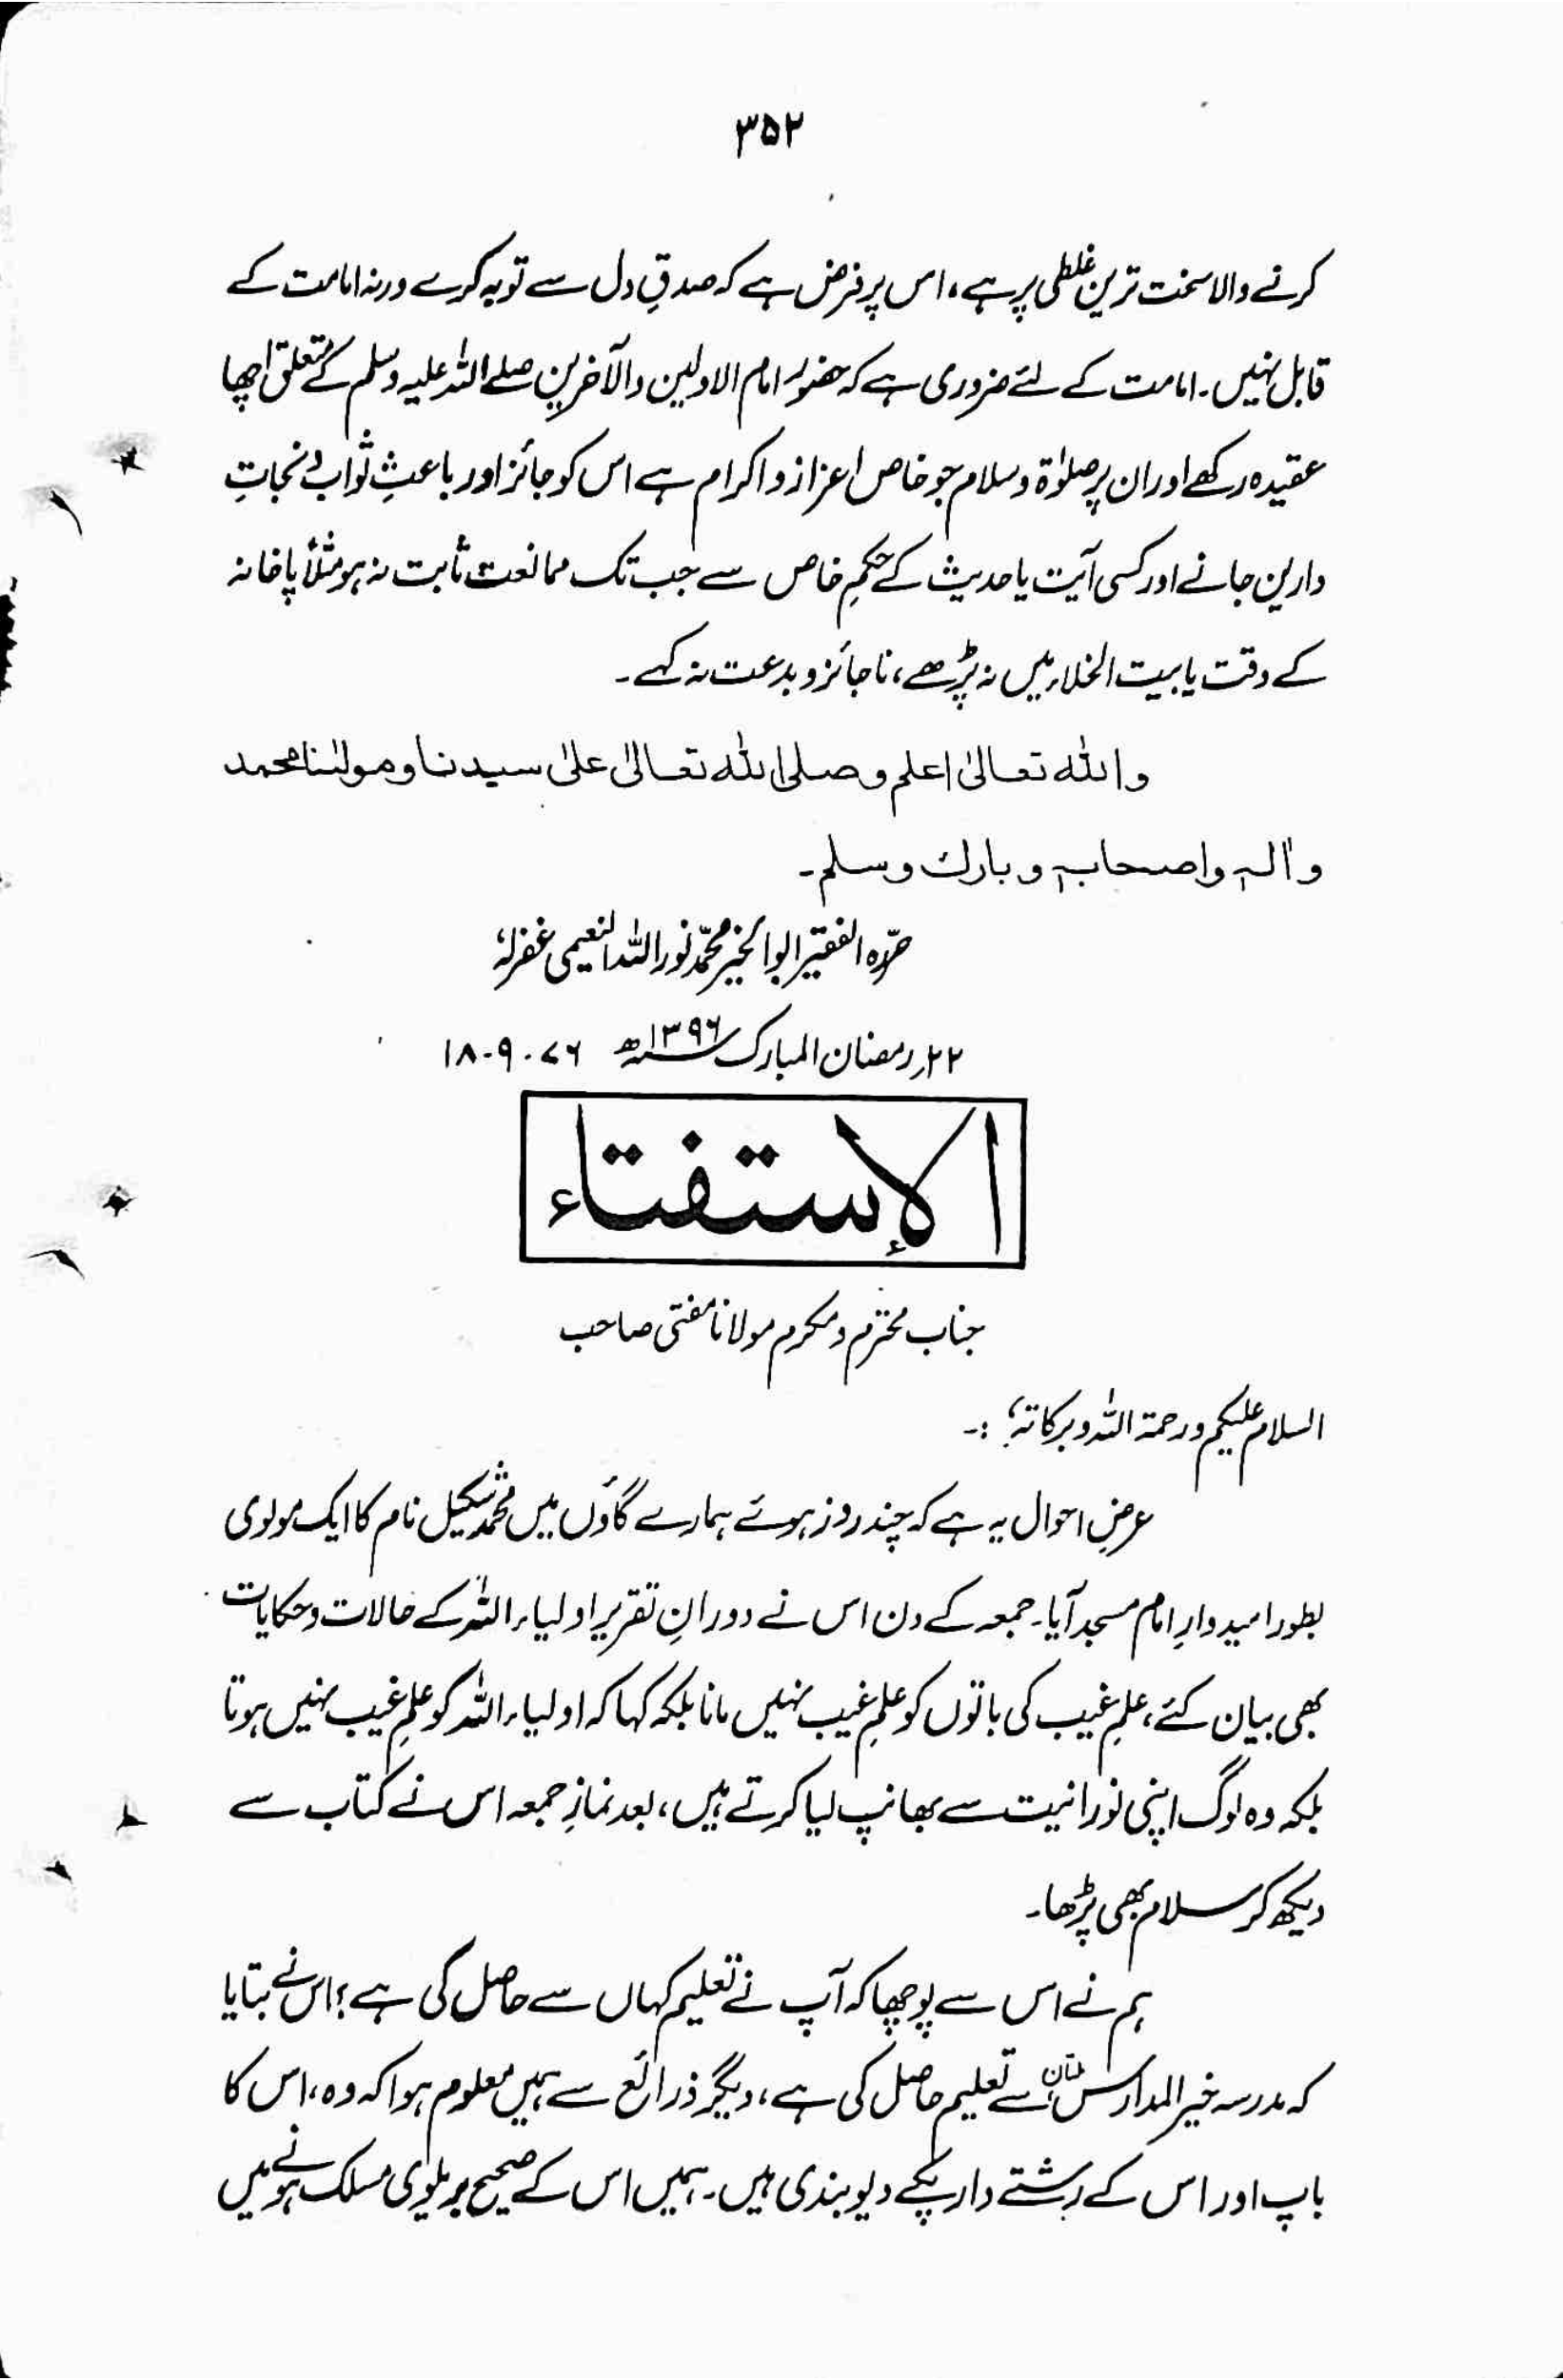 ۳۵۲
کرنے والا سخت ترین غلطی پر ہے، اس پر فرض ہے کہ صدقِ دل سے توبہ کرے ورنہ امامت کے
قابل نہیں۔ امامت کے لئے ضروری ہے کہ حضور امام الاولین والآخرین صلے اللہ علیہ وسلم کے متعلق اچھا
عقیدہ رکھے اور ان پر صلوٰۃ و سلام جو خاص اعزاز و اکرام ہے اس کو جائز اور باعثِ ثواب و نجاتِ
دارین جانے اور کسی آیت یا حدیث کے حکمِ خاص سے جب تک ممانعت ثابت نہ ہو مثلاً پاخانہ
کے وقت یا بیت الخلاء میں نہ پڑھے، ناجائز و بدعت نہ کہے۔
واللہ تعالیٰ اعلم وصلی اللہ تعالیٰ علیٰ سیدنا ومولٰنا محمد
واٰلہٖ واصحابہٖ وبارك وسلم۔
حرّہ الفقیر ابوالخیر محمّد نور اللہ النعیمی غفرلہٗ
۲۲؍ رمضان المبارک ۱۳۹۶ھ ۷۶-۹-۱۸
الإستفتاء
جناب محترم و مکرم مولانا مفتی صاحب
السلام علیکم ورحمۃ اللہ وبرکاتہٗ :۔
عرضِ احوال یہ ہے کہ چند روز ہوئے ہمارے گاؤں میں محمد شکیل نام کا ایک مولوی
بطور امیدوارِ امام مسجد آیا۔ جمعہ کے دن اس نے دورانِ تقریر اولیاء اللہ کے حالات و حکایات
بھی بیان کئے، علمِ غیب کی باتوں کو علمِ غیب نہیں مانا بلکہ کہا کہ اولیاء اللہ کو علمِ غیب نہیں ہوتا
بلکہ وہ لوگ اپنی نورانیت سے بھانپ لیا کرتے ہیں، بعد نمازِ جمعہ اس نے کتاب سے
دیکھ کر سلام بھی پڑھا۔
ہم نے اس سے پوچھا کہ آپ نے تعلیم کہاں سے حاصل کی ہے؟ اس نے بتایا
کہ مدرسہ خیر المدارس ملتان سے تعلیم حاصل کی ہے، دیگر ذرائع سے ہمیں معلوم ہوا کہ وہ، اس کا
باپ اور اس کے رشتے دار پکے دیوبندی ہیں۔ ہمیں اس کے صحیح بریلوی مسلک ہونے میں